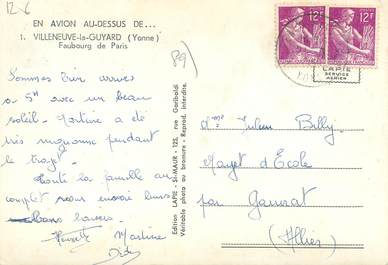 12-6
EN AVION AU-DESSUS DE...
1. VILLENEUVE-la-GUYARD (Yonne)
Faubourg de Paris
89)
12F
12F
LAPIE
SERVICE
AERIEN
Sommes bien arrivés
a 5H avec un beau
soleil. Martine a été
très mignonne pendant
le trajet.
Toute la famille au
complet vous envoie leurs
bons baisers.
Martine
Dédé
Edition LAPIE - St-MAUR - 125, rue Garibaldi
Véritable photo au bromure - Reprod. interdite.
Mme Julien Billy
Mayet d'Ecole
par Gannat
(Allier)